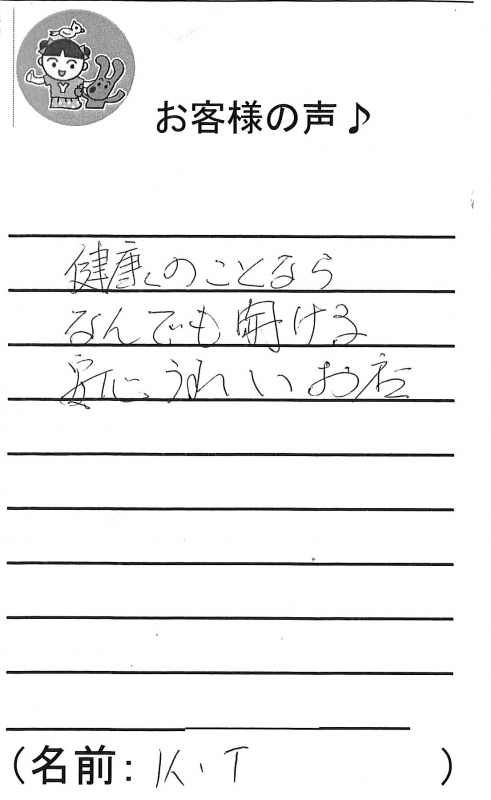 お客様の声♪
健康のことなら
なんでも聞ける
うれしいお店
(名前: K.T )